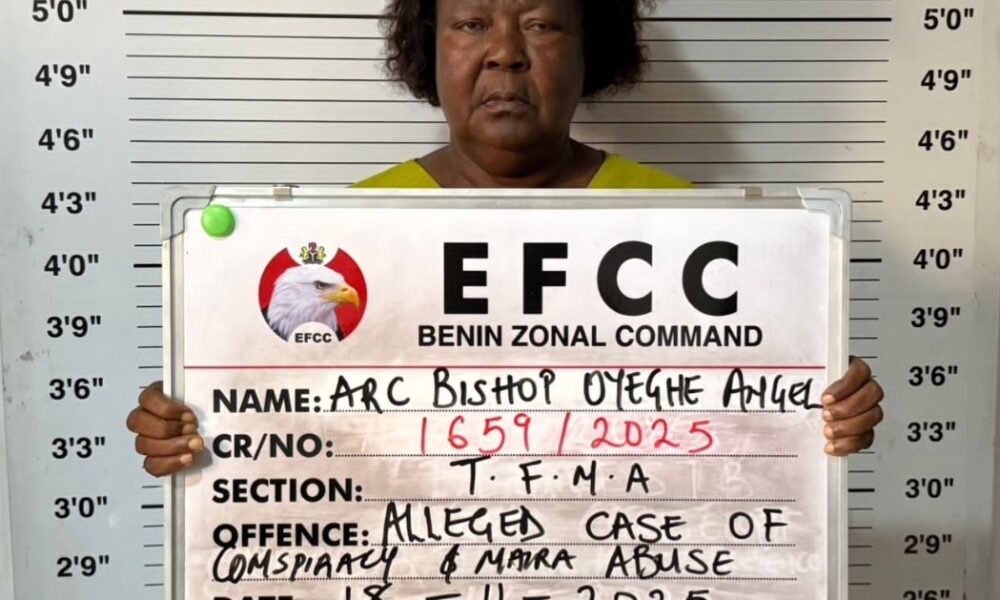 5'0" 5'0"
4'9" 4'9"
4'6" 4'6"
4'3" 4'3"
4'0" 4'0"
3'9" 3'9"
3'6" 3'6"
3'3" 3'3"
3'0" 3'0"
2'9" 2'9"
2'6"
EFCC
EFCC
BENIN ZONAL COMMAND
NAME: ARC BISHOP OYEGHE ANGEL
CR/NO: 1659/2025
SECTION: T.F.M.A
OFFENCE: ALLEGED CASE OF
CONSPIRACY & NAIRA ABUSE
DATE 18-11-2025